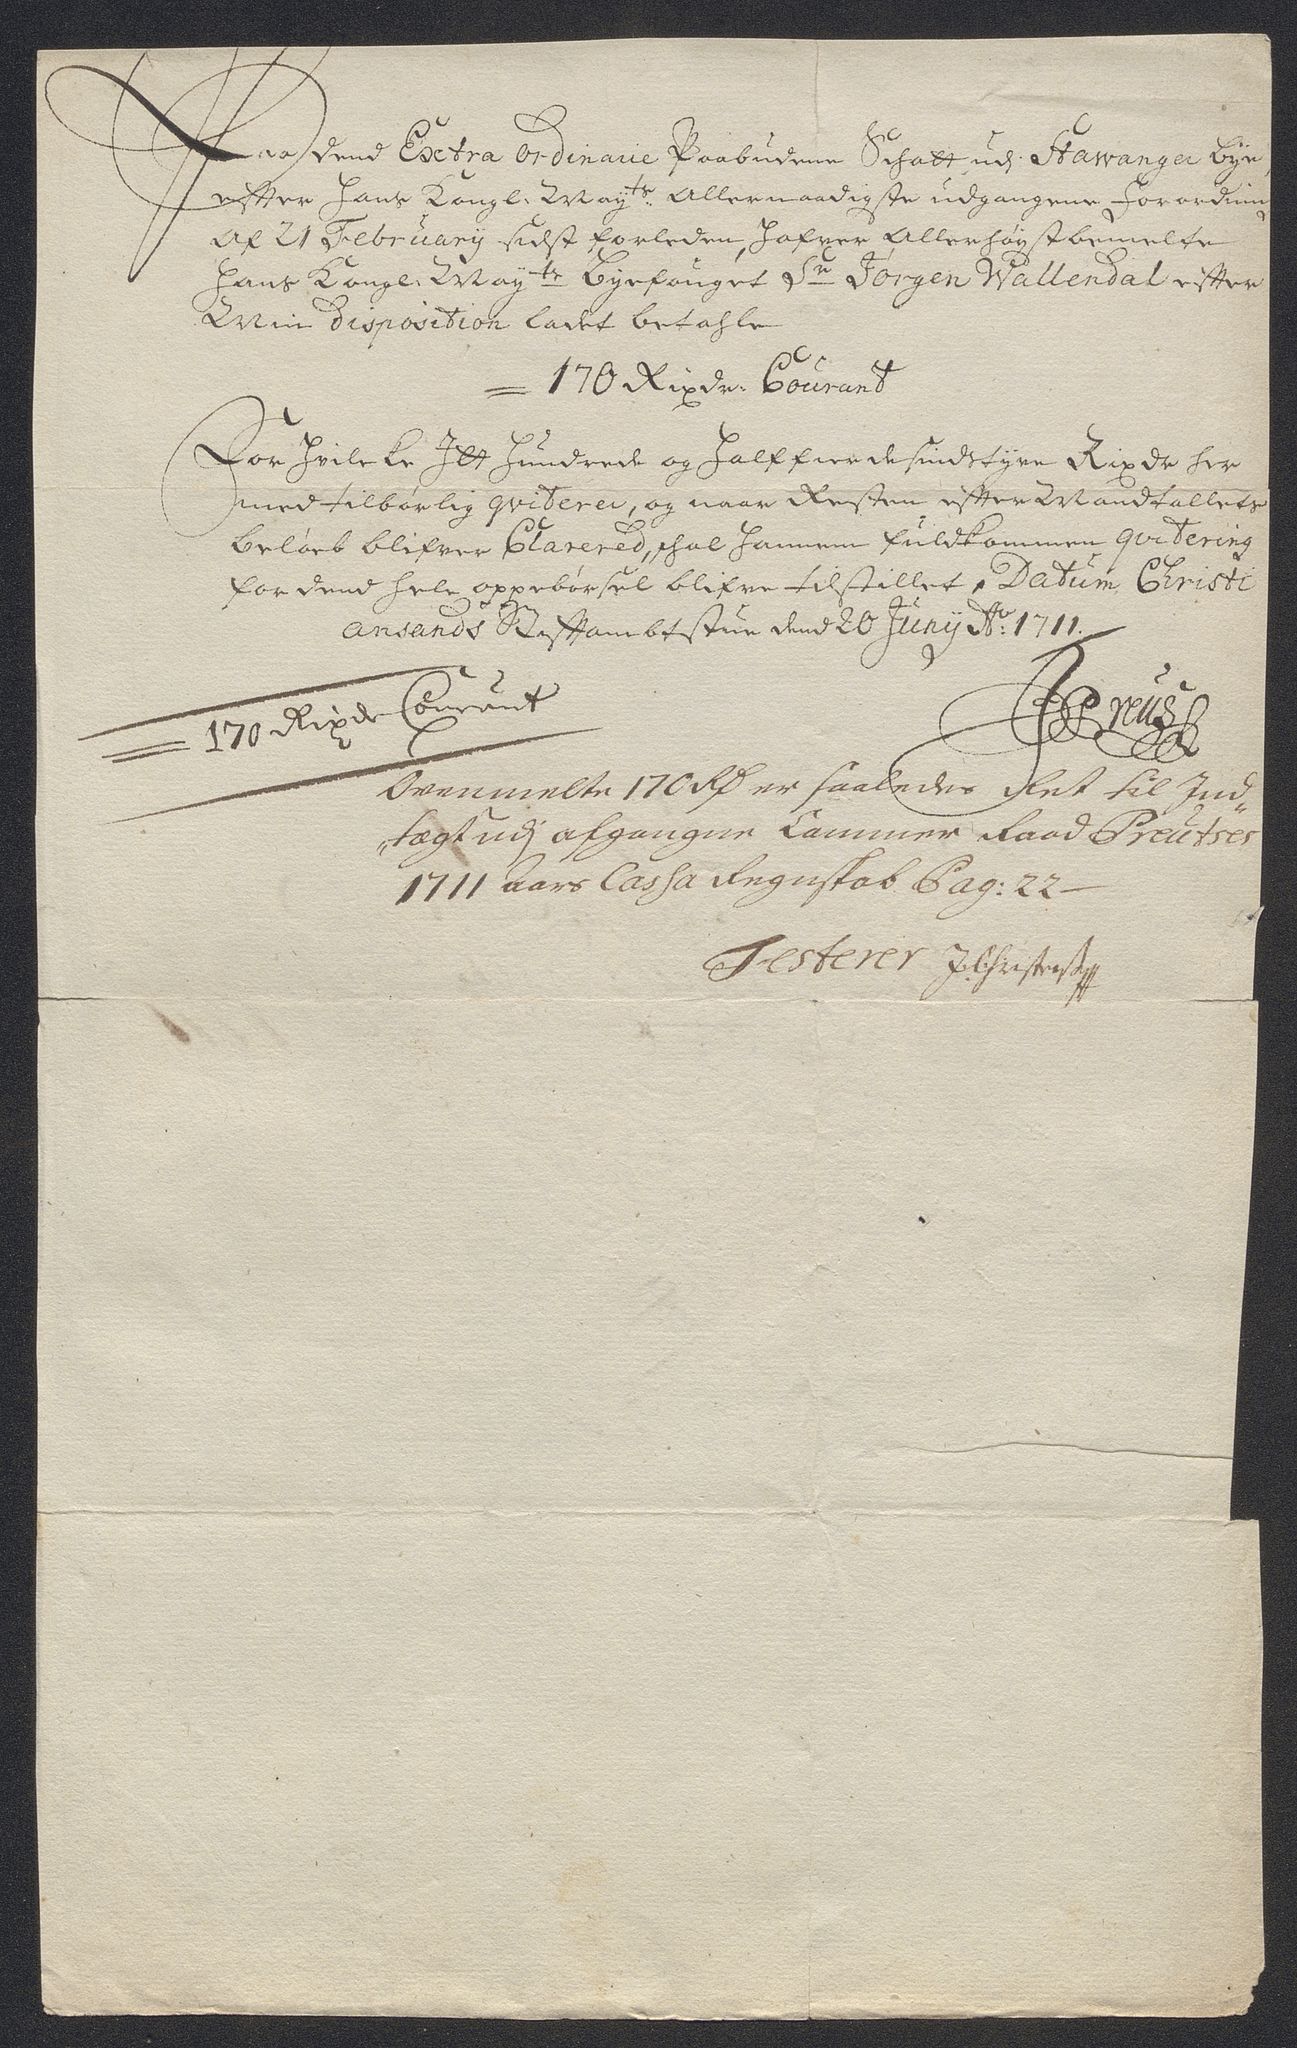 Paa dend Exctra Ordinarie Paabudene Schatt udj Stawanger bye,
efter Hans Kongl: May:ts Allernaadigste udgangene Forordning
Af 21 February sidst forleden, Hafver Allerhøystbemelte
Hans Kongl: May:ts Byefouget Sr Jørgen Wallendal efter
Min disposition ladet betahle
= 170 Rixdr: Courant
For Hvilcke Itt Hundrede og Halffierdesindstyve Rixdr her
med tilbørlig qviterer, og naar Resten efter Mandtallets
beløeb blifver Clarered, schal Hannem fuldkommen qvitering
for dend hele oppebørsel blifve tilstillet, Datum Christi
ansands Stiftambtstue dend 20 Juny Ao: 1711.
= 170 Rixdr Courant
Preus
Ovenmelte 170 Rd er saaledes ført til Ind„
„tægt udj afgangne Cammer Raad Preutses
1711 aars Cassa Regnskab Pag: 22 —
Testerer J Christens